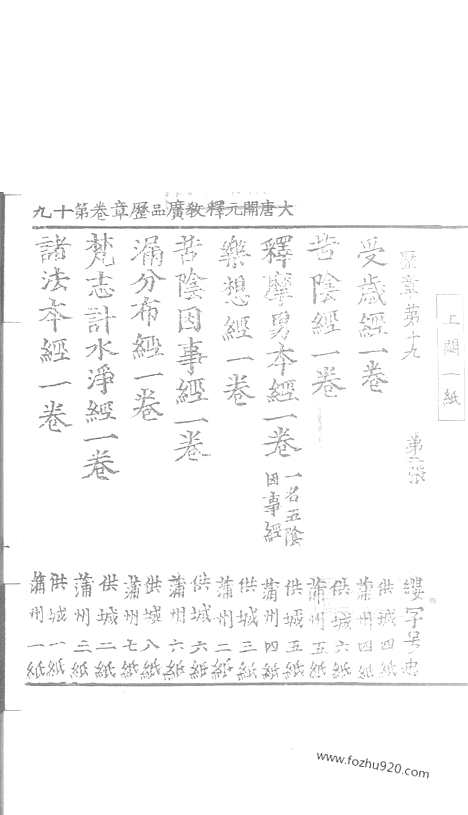 大唐開元釋教廣品歷章卷第十九
上闕一紙
歷章第十九 第二張
受歲經一卷
供城四紙
蒲州四紙
苦陰經一卷
供城六紙
蒲州五紙
釋摩男本經一卷 一名五陰因事經
供城五紙
蒲州四紙
樂想經一卷
供城三紙
蒲州二紙
苦陰因事經一卷
供城六紙
蒲州六紙
漏分布經一卷
供城八紙
蒲州七紙
梵志計水淨經一卷
供城二紙
蒲州三紙
諸法本經一卷
供城一紙
蒲州一紙
www.fozhu920.com